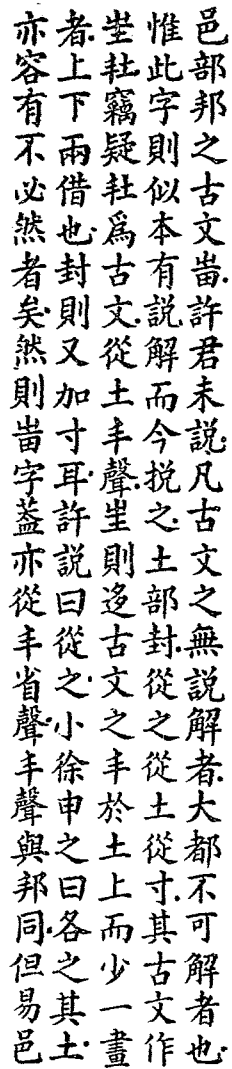 邑部邦之古文㽪許君未說凡古文之無說解者大都不可解者也
惟此字則似本有說解而今挩之土部封從之從土從寸其古文作
㞷𡉚竊疑𡉚爲古文從土丰聲㞷則迻古文之丰於土上而少一畫
者上下兩借也封則又加寸耳許說曰從之小徐申之曰各之其土
亦容有不必然者矣然則㽪字葢亦從丰省聲丰聲與邦同但易邑